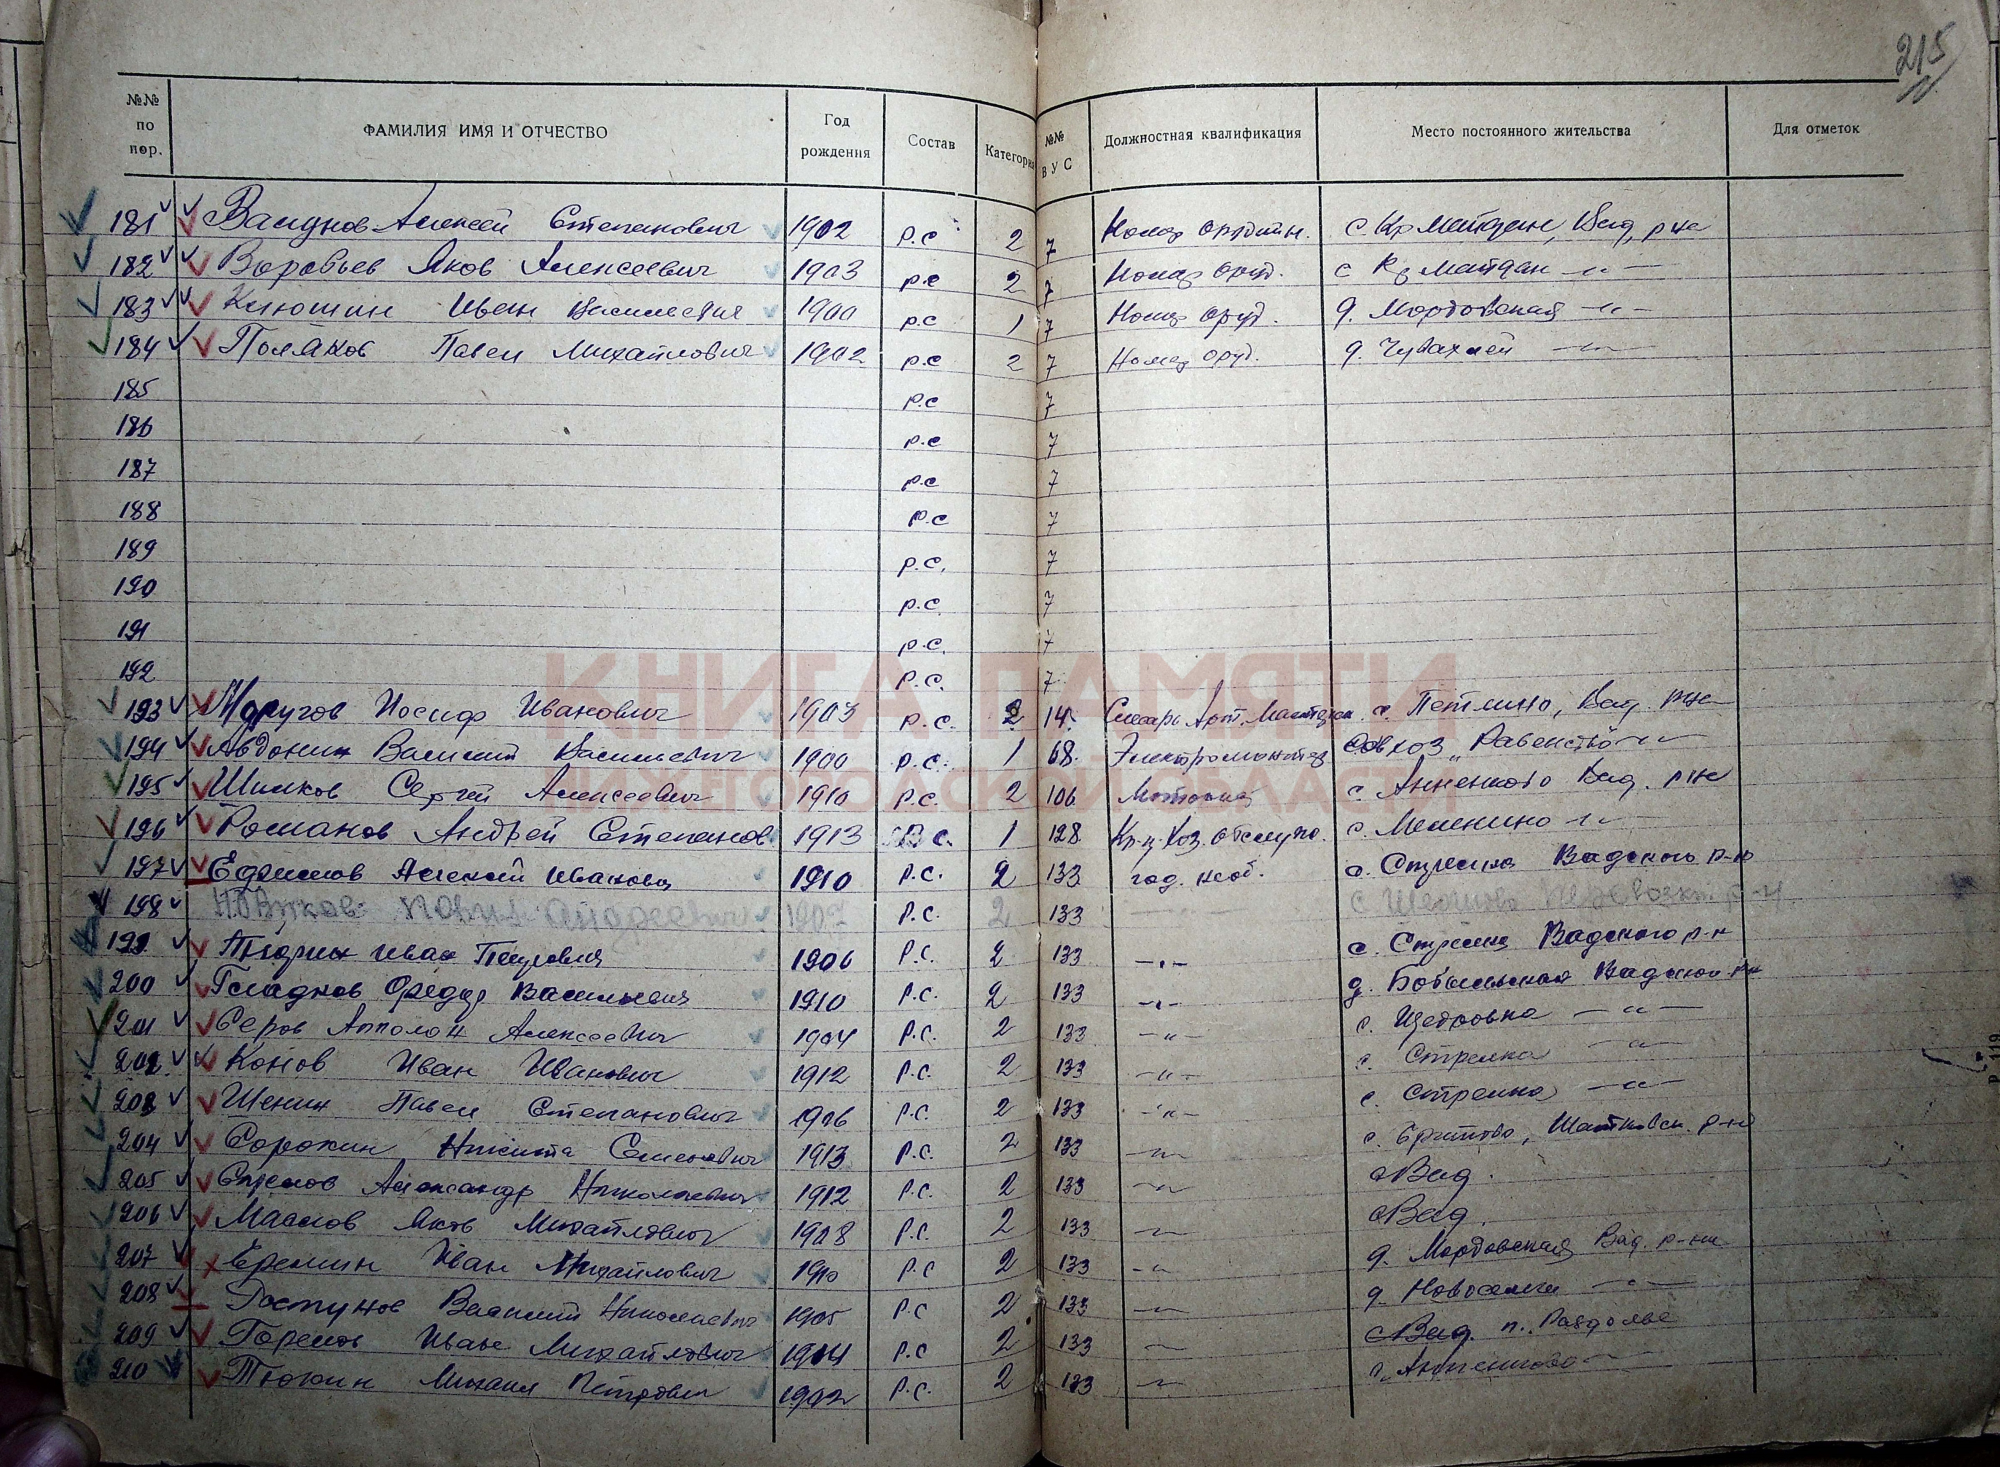 215
№№ по пор. ФАМИЛИЯ ИМЯ И ОТЧЕСТВО Год рождения Состав Категория №№ ВУС Должностная квалификация Место постоянного жительства Для отметок
181 Алексей Степанович 1902 р.с 2 7 Номер орудийн. с. Кр Майдан, Вад, р-на
182 Воробьев Яков Алексеевич 1903 р.с 2 7 Номер оруд. с Кр Майдан —〃—
183 Клюшин Иван Васильевич 1900 р.с 1 7 Номер оруд. д. Мордовская —〃—
184 Поляков Павел Михайлович 1902 р.с 2 7 Номер оруд. д. Чувахлей —〃—
185 р.с 7
186 р.с 7
187 р.с 7
188 р.с 7
189 р.с. 7
190 р.с. 7
191 р.с. 7
192 р.с. 7
193 Моругов Иосиф Иванович 1903 р.с. 2 14. Слесарь Арт. с. Петлино, Вад. р-на
194 Авдонин Василий Васильевич 1900 р.с. 1 68. Электромонтер Совхоз „Равенство" —〃—
195 Шишков Сергей Алексеевич 1910 р.с. 2 106 с. Анненково Вад. р-на
196 Романов Андрей Степанов 1913 с. 1 128 Хоз. обслуж. с. Меленино —〃—
197 Ефремов Алексей Иванович 1910 р.с. 2 133 год. необ. с. Стрелка Вадского р-на
198 Новиков Павел Андреевич 1902 р.с. 2 133 —〃— с Перевозк. р-н.
199 Иван Петрович 1906 р.с. 2 133 —〃— с. Стрелка Вадского р-н
200 Гладков Федор Васильевич 1910 р.с. 2 133 —〃— д. Бобыльская Вадского р-н
201 Серов Апполон Алексеевич 1904 р.с. 2 133 —〃— с. Щедровка —〃—
202 Конов Иван Иванович 1912 р.с. 2 133 —〃— с. Стрелка —〃—
203 Шенин Павел Степанович 1906 р.с. 2 133 —〃— с. Стрелка —〃—
204 Сорокин Никита Семенович 1913 р.с. 2 133 —〃— с. Бритово, Шатковск. р-на
205 Александр Николаевич 1912 р.с. 2 133 —〃— с Вад.
206 Маслов Яков Михайлович 1908 р.с. 2 133 —〃— с Вад.
207 Еремин Иван Михайлович 1910 р.с 2 133 —〃— д. Мордовская Вад. р-на
208 Гостунов Василий Николаевич 1905 р.с 2 133 —〃— д. Новоселки —〃—
209 Горелов Иван Михайлович 1904 р.с 2 133 —〃— с Вад. п. Раздолье
210 Тюкин Михаил Петрович 1902 р.с. 2 133 —〃— с. Анненково —〃—
КНИГА ПАМЯТИ
НИЖЕГОРОДСКОЙ ОБЛАСТИ